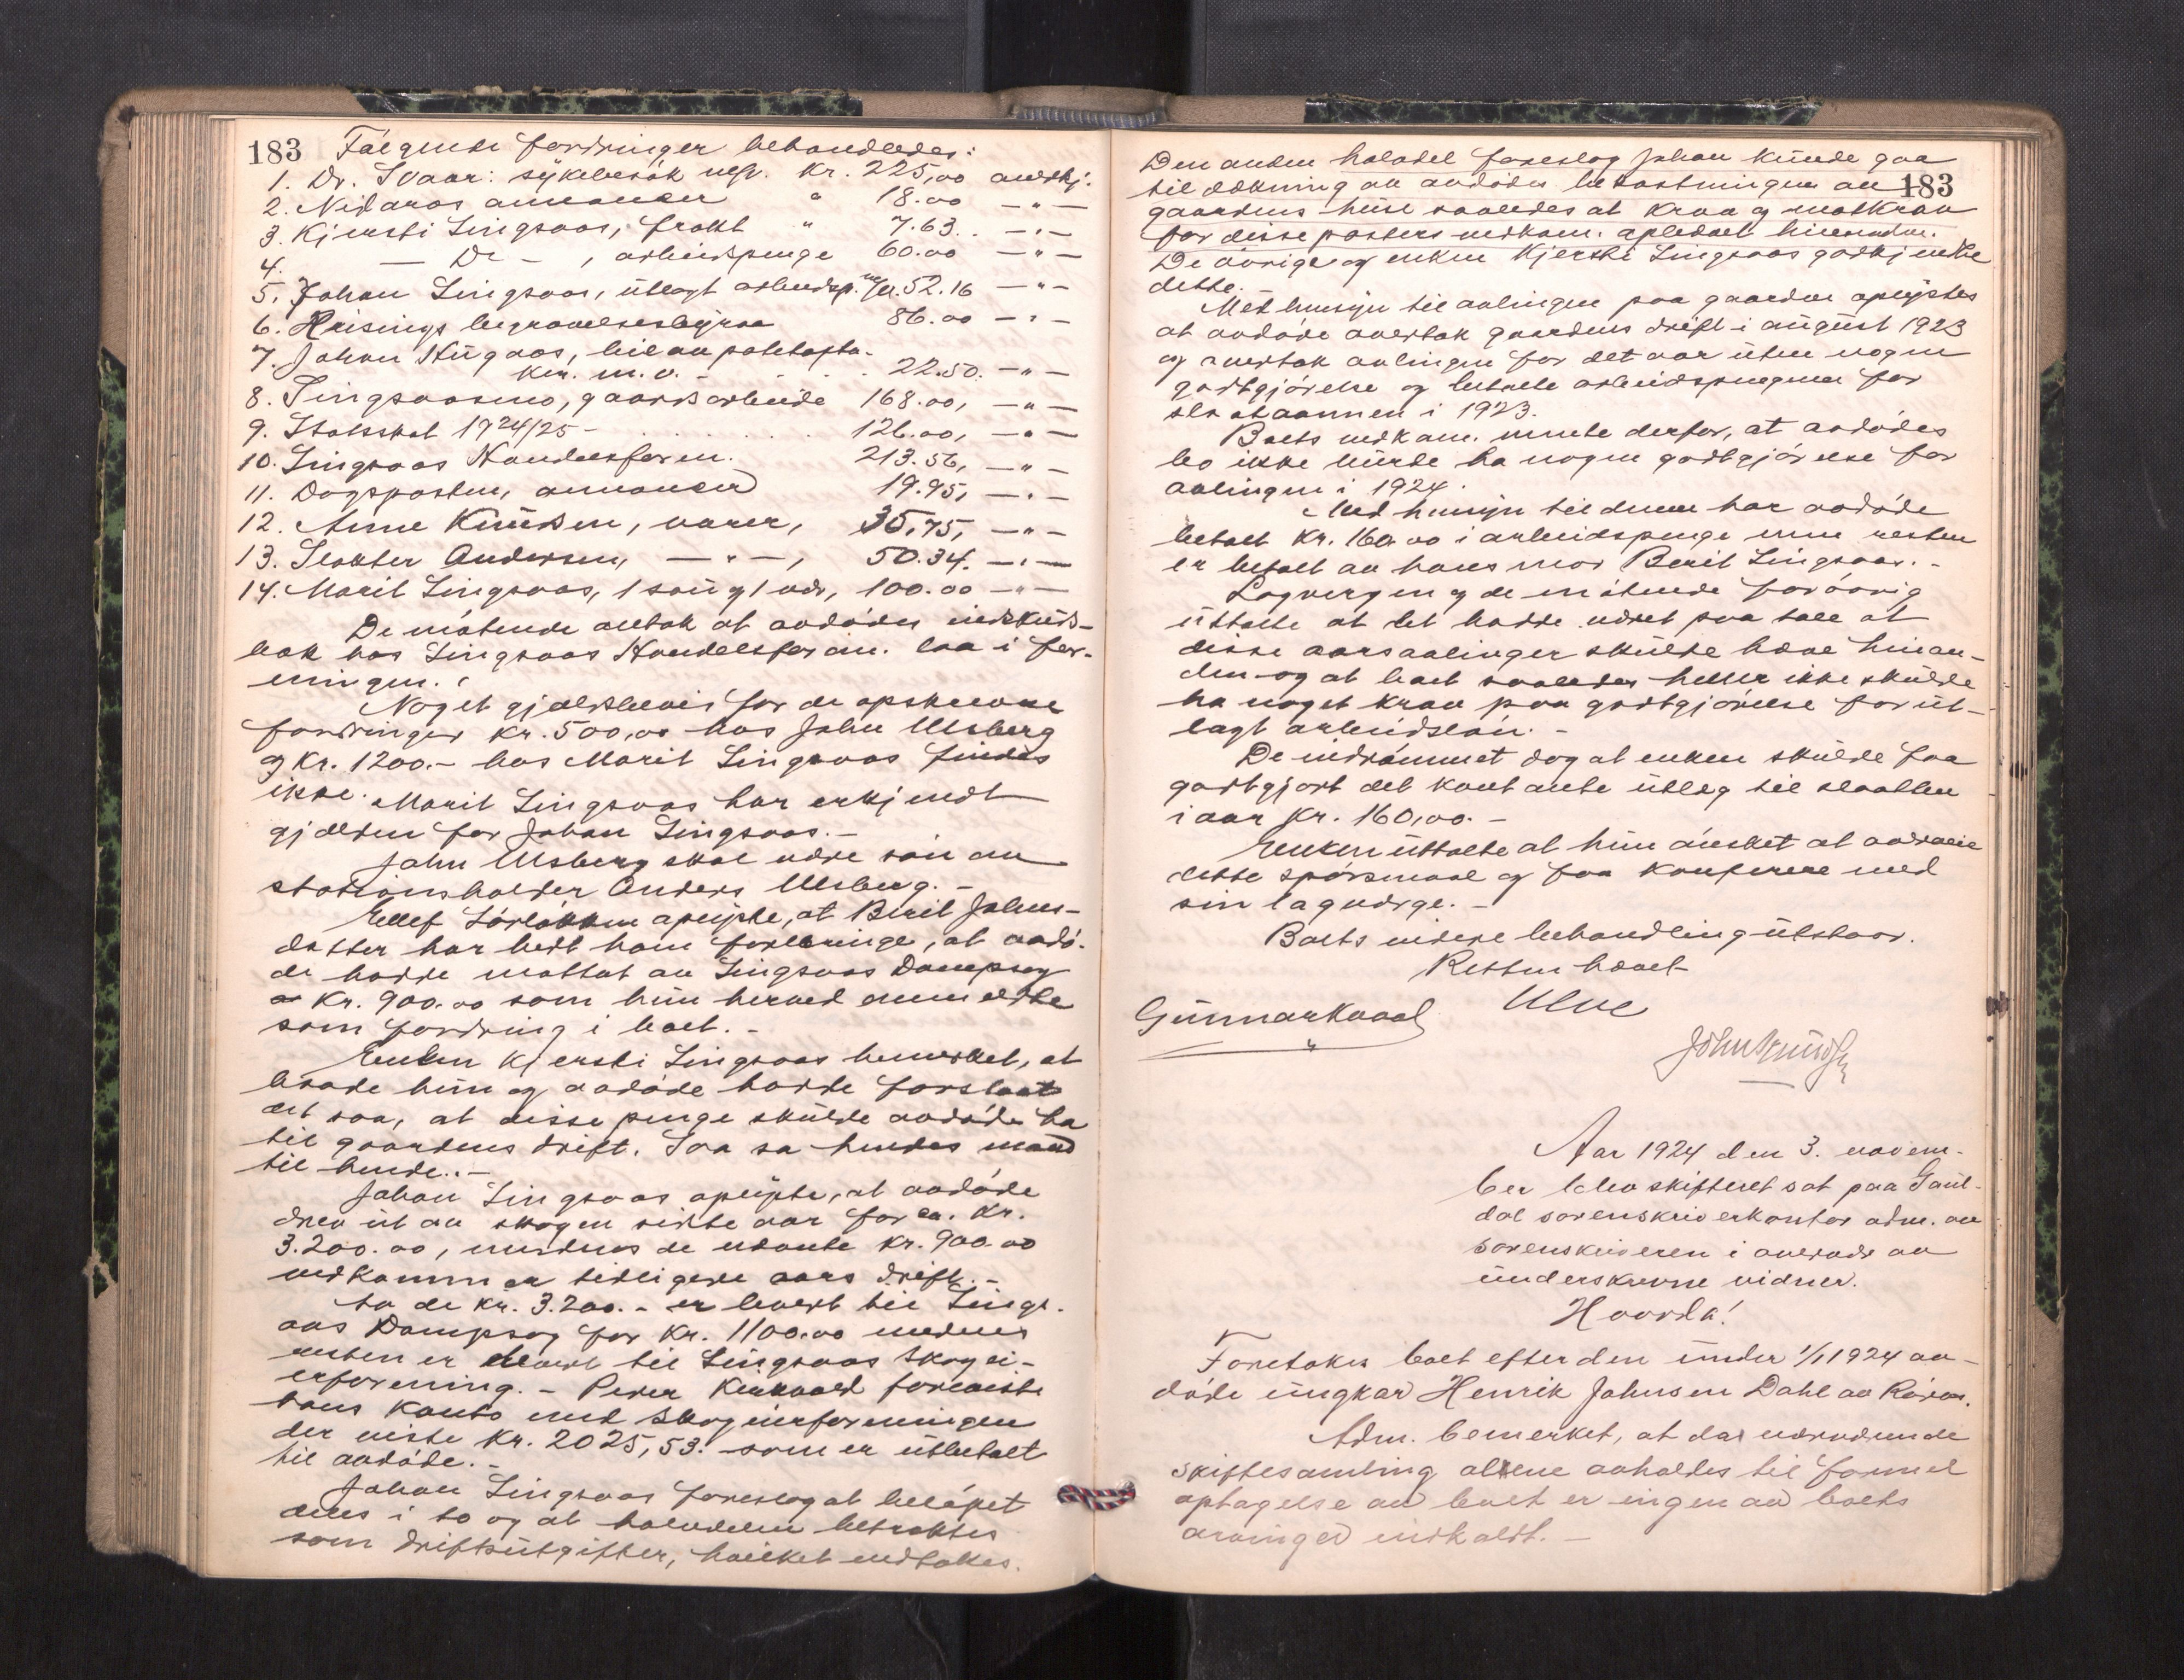 183 Følgende fordringer behandledes:
1. Dr. Svaar: sykebesök resp. kr. 225,00 anerkj.
2. Nidaros annoncer " 18.00 — " —
3. Kjersti Singsaas, frakt " 7.63. — " —
4. — Do — , arbeidspenge 60.00 — " —
5. Johan Singsaas, utlagt arbeidsp. kr. 52.16 — " —
6. Risings begravelsesbyraa 86.00 — " —
7. Johan Haugaas, leie av potetopta-
ker. m.v. - 22.50. — " —
8. Singsaasmo, gaardsarbeide 168.00, — " —
9. Statsskat 1924/25 - 126.00, — " —
10. Singsaas Handelsforen. 213.56, — " —
11. Dagsposten, annoncer 19.95, — " —
12. Anne Knudsen, varer, 35,75, — " —
13. Slakter Andersen, — " —, 50.34. — " —
14. Marit Singsaas, 1 sau og 1 vær, 100.00 — " —
De møtende antok at avdødes indskuds-
bok hos Singsaas Handelsforen. laa i for-
eningen.
Noget gjældsbevis for de opskrevne
fordringer kr. 500,00 hos John Ulsberg
og kr. 1200.- hos Marit Singsaas findes
ikke. Marit Singsaas har erkjendt
gjælden for Johan Singsaas. -
John Ulsberg skal være søn av
stationsholder Anders Ulsberg. -
Ellef Sørløkken oplyste, at Berit Johns-
datter har bedt ham frembringe, at avdø-
de hadde mottat av Singsaas Dampsag
kr. 900.00 som hun herved anmeldte
som fordring i boet. -
Enken Kjersti Singsaas bemerket, at
baade hun og avdøde hadde forstaat
det saa, at disse penge skulde avdøde ha
til gaardens drift. Saa sa hendes mand
til hende. -
Johan Singsaas oplyste, at avdøde
drev ut av skogen sidste aar for ca. kr.
3.200.00, mens de nævnte kr. 900.00
vedkommer tidligere aars drift. -
Av de kr. 3.200.- er levert til Sings-
aas Dampsag for kr. 1100.00 medens
resten er levert til Singsaas Skogei-
erforening. - Peder Kirkvold foreviste
hans konto med Skogeierforeningen
der viste kr. 2025,53. som er utbetalt
til avdøde. -
Johan Singsaas foreslog at beløpet
deles i to og at halvdelen betraktes
som driftsutgifter, hvilket vedtokes.
Den anden halvdel foreslog Johan kunde gaa
til dækning av avdødes bekostninger av 183
gaardens huse saaledes at krav og motkrav
for disse posters vedkom. ophævet hinanden.
De øvrige og enken Kjersti Singsaas godkjendte
dette.
Med hensyn til avlingen paa gaarden oplystes
at avdøde overtok gaardens drift i august 1923
og overtok avlingen for det aar uten nogen
godtgjørelse og betalte arbeidspengene for
slaataannen i 1923.
Boets vedkom. mente derfor, at avdødes
bo ikke burde ha nogen godtgjørelse for
avlingen i 1924.
Med hensyn til denne har avdøde
betalt kr. 160.00 i arbeidspenge mens resten
er betalt av hans mor Berit Singsaas. -
Lagvergen og de møtende forøvrig
uttalte at det hadde været paa tale at
disse aarsavlinger skulde hæve hinan-
den og at boet saaledes heller ikke skulde
ha noget krav paa godtgjørelse for ut-
lagt arbeidsløn. -
De indrømmet dog at enken skulde faa
godtgjort det kontante utlæg til slaatten
i aar kr. 160,00. -
Enken uttalte at hun ønsket at overveie
dette spørsmaal og faa konferere med
sin lagverge. -
Boets videre behandling utstaar.
Retten hævet
Ulve
Gunnar Kvaal
Aar 1924 den 3. novem-
ber blev skifteret sat paa Gaul-
dal sorenskriverkontor adm. av
sorenskriveren i overvær av
underskrevne vidner.
Hvorda!
Foretokes boet efter den under 1/11 1924 av-
døde ungkar Henrik Johnsen Dahl av Røros.
Adm. bemerket, at da nærværende
skiftesamling alene avholdes til formel
optagelse av boet er ingen av boets
arvinger indkaldt. -